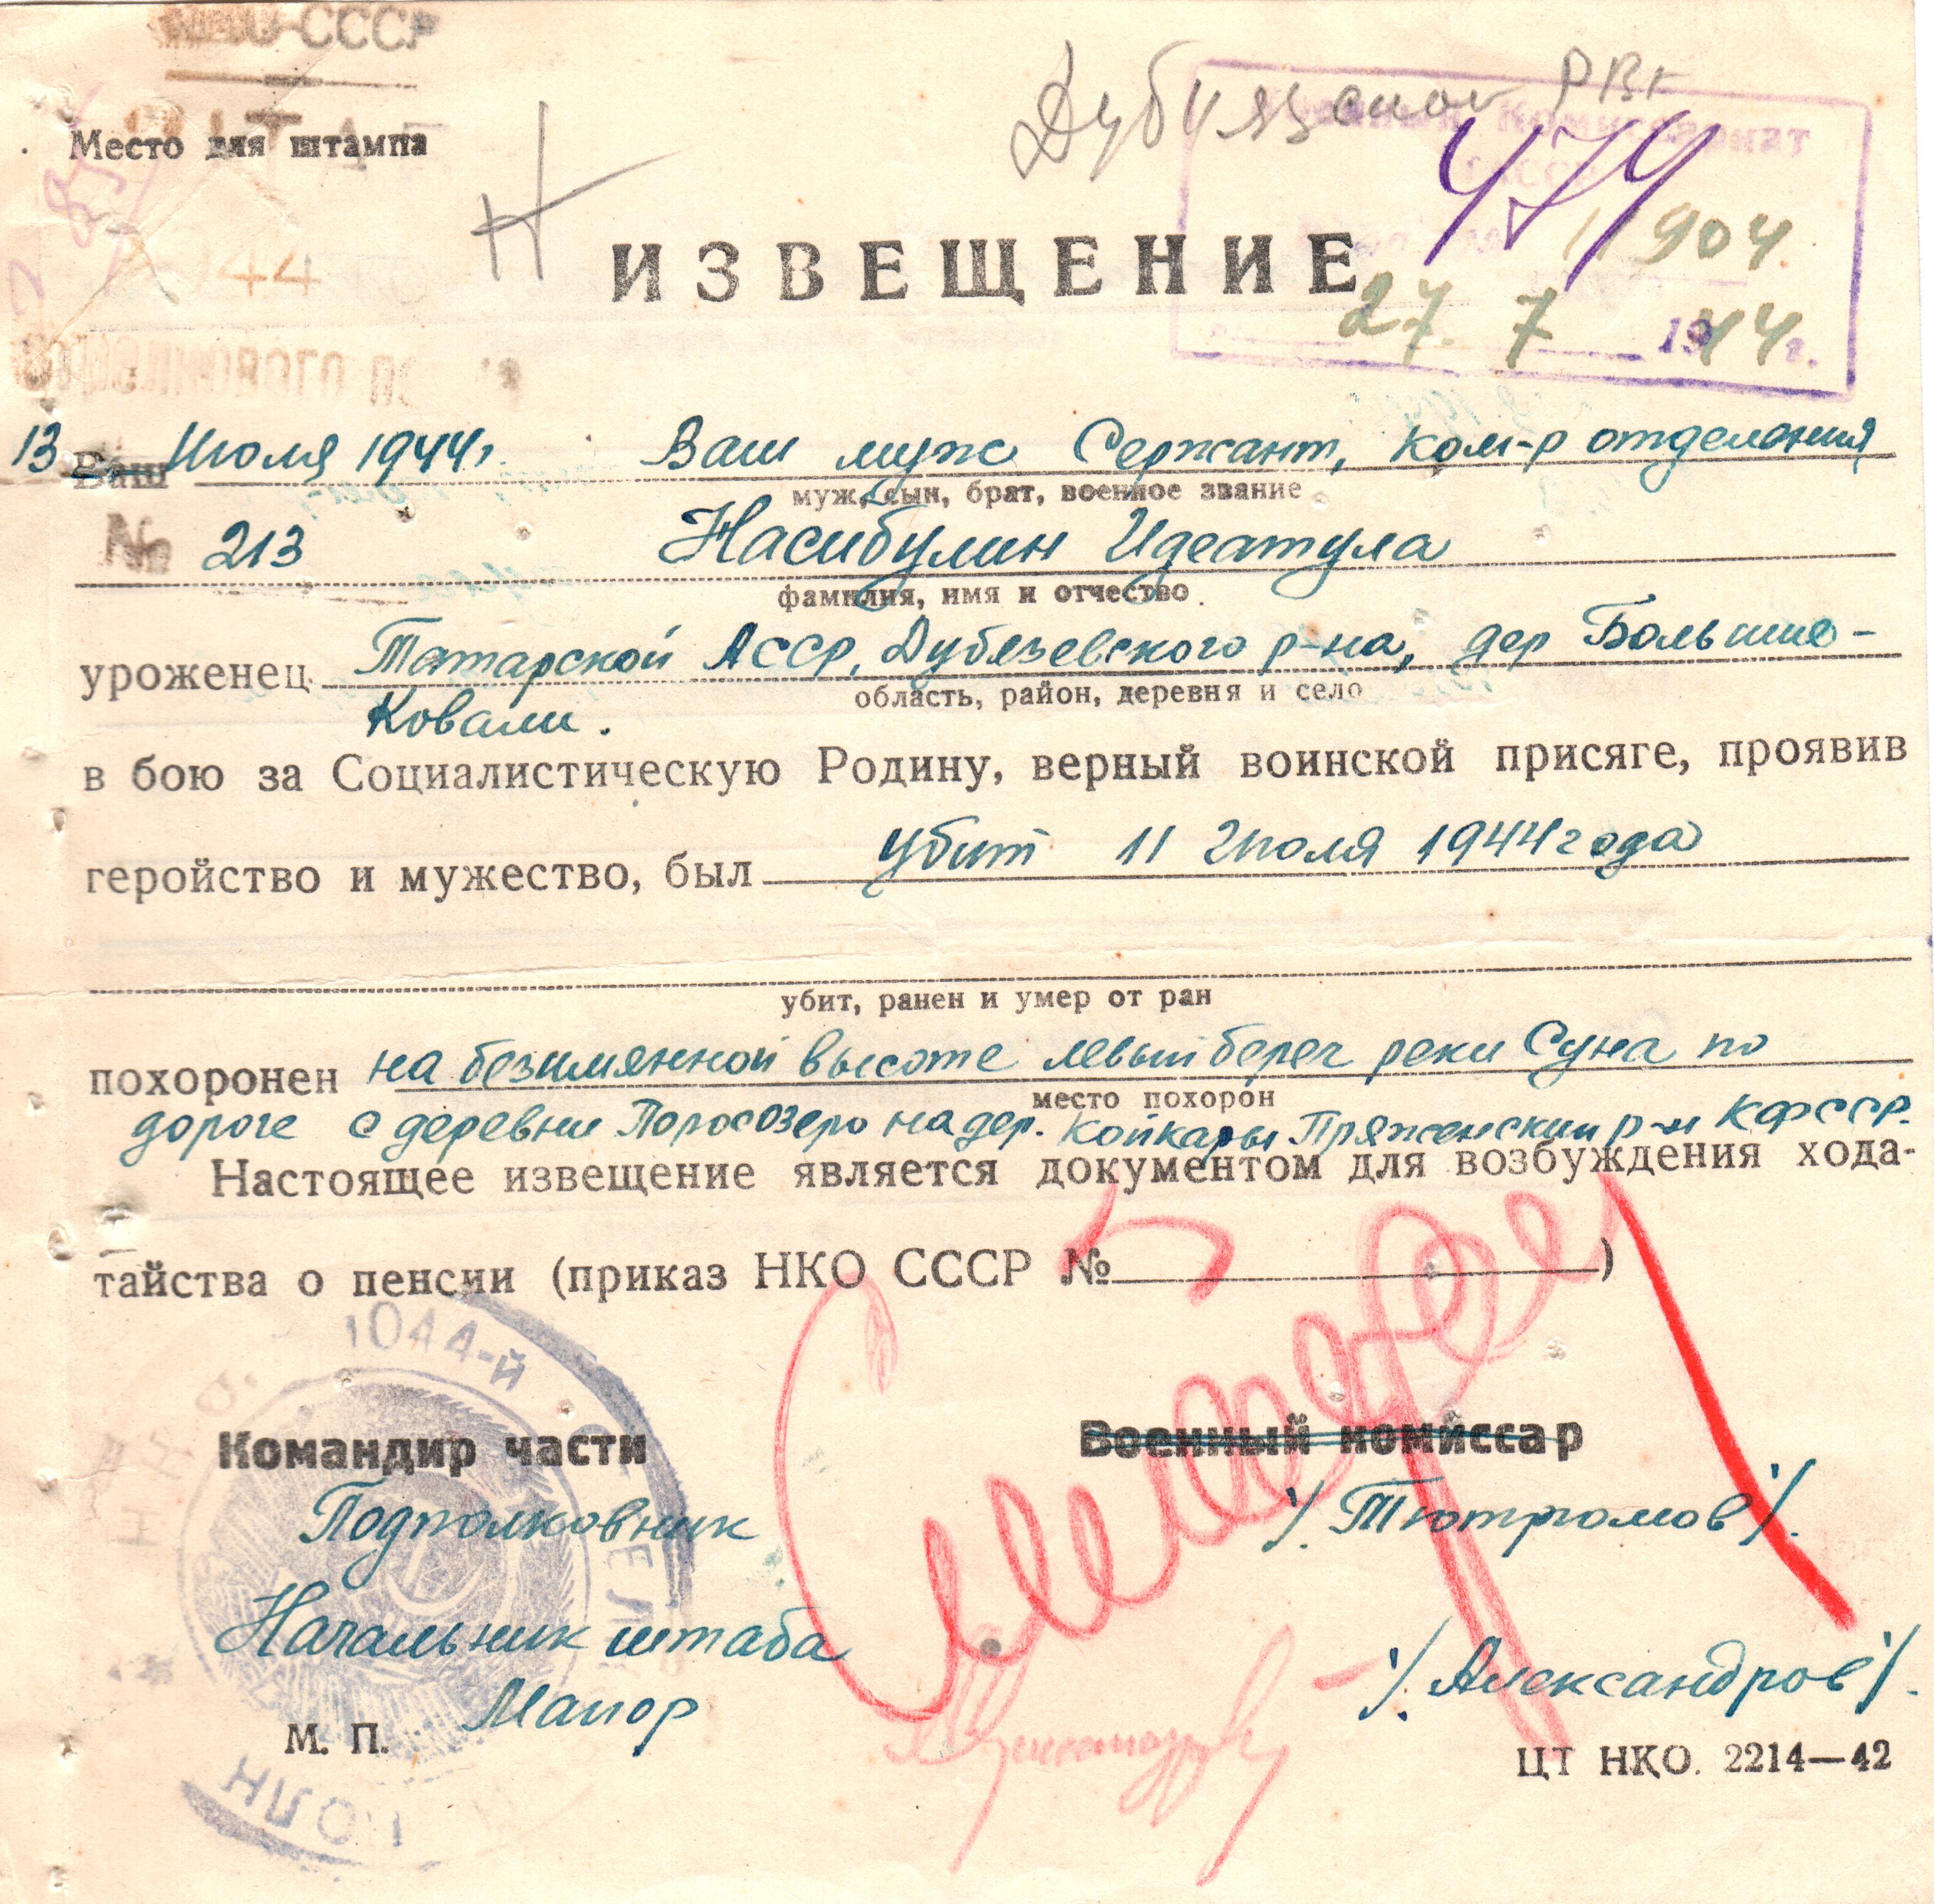 СССР
Дубъязской РВК
Место для штампа
479
11904
44
ИЗВЕЩЕНИЕ
27 7 1944 г.
13 Ваш Июля 1944 г. Ваш муж Сержант, ком-р отделения
муж, сын, брат, военное звание
№ 213 Насибулин Идеатула
фамилия, имя и отчество
уроженец Татарской АССР, Дубязевского р-на, дер Большие-
область, район, деревня и село
Ковали.
в бою за Социалистическую Родину, верный воинской присяге, проявив
геройство и мужество, был убит 11 Июля 1944 года
убит, ранен и умер от ран
похоронен на безимянной высоте левый берег реки Суна по
место похорон
дороге с деревни Поросозеро на дер. Койкары Пряженский р-н КФССР.
Настоящее извещение является документом для возбуждения хода-
тайства о пенсии (приказ НКО СССР № )
1044-й
Н К О
Командир части Военный комиссар
Подполковник /Тютрюмов/.
Начальник штаба
Маиор /Александров/.
М. П.
ЦТ НКО. 2214—42
ПОЛК